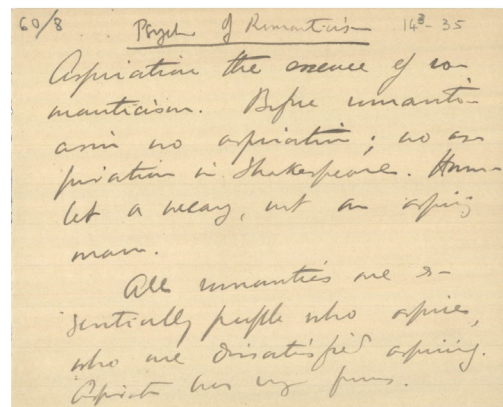 60/8 Psych of Romanticism 14-3-35
Aspiration the essence of ro-
manticism. Before romanti-
cism no aspiration; no as-
piration in Shakespeare. Ham-
let a weary, not an aspiring
man.
All romantics are es-
sentially people who aspire,
who are dissatisfied aspiring.
Aspirat has